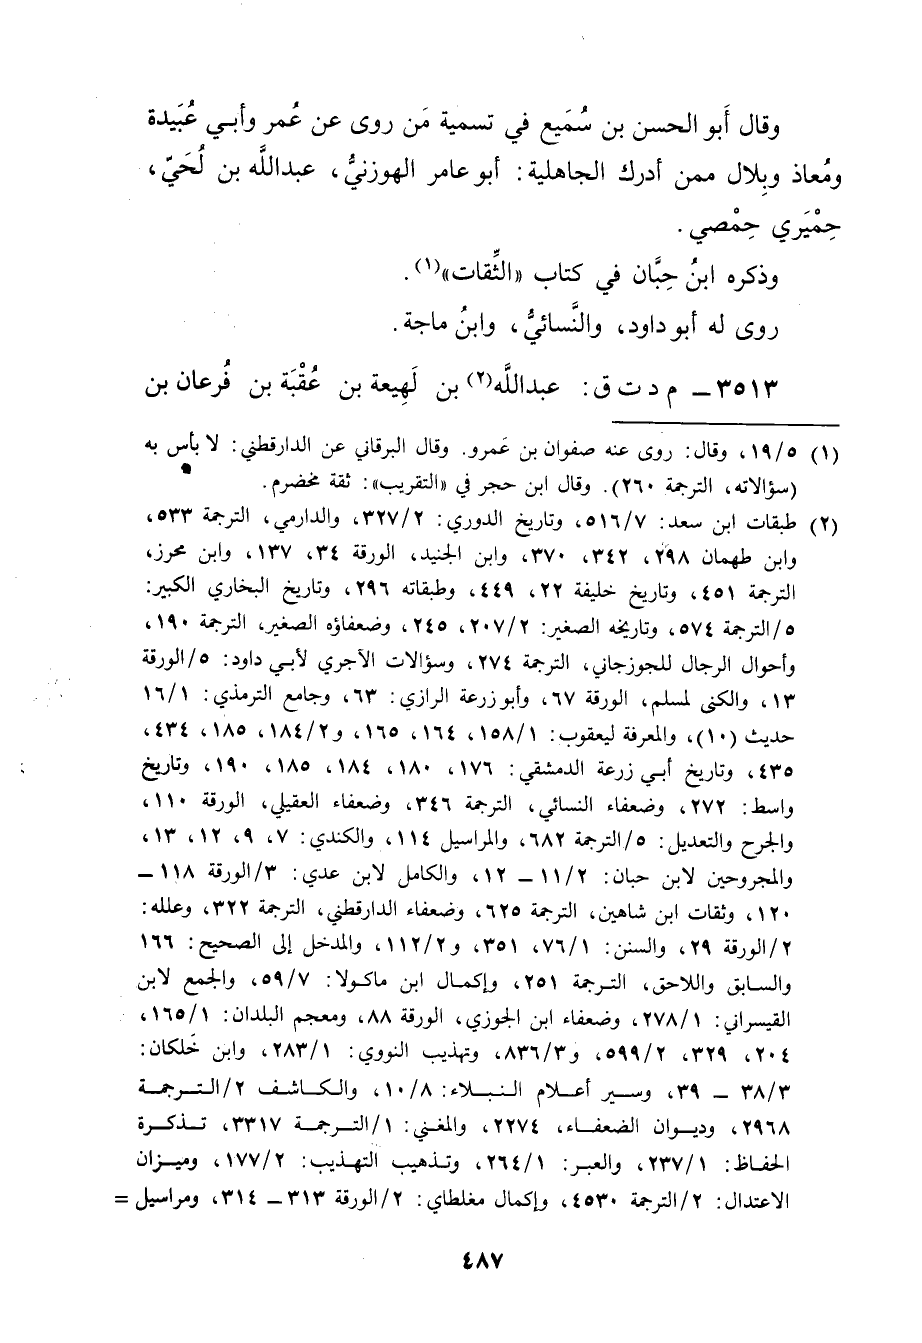 وقال أَبو الحسن بن سُمَيع في تسمية مَن روى عن عُمر وأبي عُبَيدة
ومُعاذ وبِلال ممن أدرك الجاهلية: أبو عامر الهوزنيُّ، عبدالله بن لُحَيّ،
حِمْيَري حِمْصي.
وذكره ابنُ حِبَّان في كتاب «الثِّقات»(١).
روى له أبو داود، والنَّسائيُّ، وابنُ ماجة.
٣٥١٣ـ م د ت ق: عبدالله(٢) بن لَهِيعة بن عُقْبَة بن فُرعان بن
(١) ١٩/٥، وقال: روى عنه صفوان بن عمرو. وقال البرقاني عن الدارقطني: لا بأس به
(سؤالاته، الترجمة ٢٦٠). وقال ابن حجر في «التقريب»: ثقة مخضرم.
(٢) طبقات ابن سعد: ٥١٦/٧، وتاريخ الدوري: ٣٢٧/٢، والدارمي، الترجمة ٥٣٣،
وابن طهمان ٢٩٨، ٣٤٢، ٣٧٠، وابن الجنيد، الورقة ٣٤، ١٣٧، وابن محرز،
الترجمة ٤٥١، وتاريخ خليفة ٢٢، ٤٤٩، وطبقاته ٢٩٦، وتاريخ البخاري الكبير:
٥/الترجمة ٥٧٤، وتاريخه الصغير: ٢٠٧/٢، ٢٤٥، وضعفاؤه الصغير، الترجمة ١٩٠،
وأحوال الرجال للجوزجاني، الترجمة ٢٧٤، وسؤالات الآجري لأبي داود: ٥/الورقة
١٣، والكنى لمسلم، الورقة ٦٧، وأبو زرعة الرازي: ٦٣، وجامع الترمذي: ١٦/١
حديث (١٠)، والمعرفة ليعقوب: ١٥٨/١، ١٦٤، ١٦٥، و١٨٤/٢، ١٨٥، ٤٣٤،
٤٣٥، وتاريخ أبي زرعة الدمشقي: ١٧٦، ١٨٠، ١٨٤، ١٨٥، ١٩٠، وتاريخ
واسط: ٢٧٢، وضعفاء النسائي، الترجمة ٣٤٦، وضعفاء العقيلي، الورقة ١١٠،
والجرح والتعديل: ٥/الترجمة ٦٨٢، والمراسيل ١١٤، والكندي: ٧، ٩، ١٢، ١٣،
والمجروحين لابن حبان: ١١/٢ ـ ١٢، والكامل لابن عدي: ٣/الورقة ١١٨ ـ
١٢٠، وثقات ابن شاهين، الترجمة ٦٢٥، وضعفاء الدارقطني، الترجمة ٣٢٢، وعلله:
٢/الورقة ٢٩، والسنن: ٧٦/١، ٣٥١، و١١٢/٢، والمدخل إلى الصحيح: ١٦٦
والسابق واللاحق، الترجمة ٢٥١، وإكمال ابن ماكولا: ٥٩/٧، والجمع لابن
القيسراني: ٢٧٨/١، وضعفاء ابن الجوزي، الورقة ٨٨، ومعجم البلدان: ١٦٥/١،
٢٠٤، ٣٢٩، ٥٩٩/٢، و٨٣٦/٣، وتهذيب النووي: ٢٨٣/١، وابن خلكان:
٣٨/٣ ـ ٣٩، وسير أعلام النبلاء: ١٠/٨، والكاشف ٢/الترجمة
٢٩٦٨، وديوان الضعفاء، ٢٢٧٤، والمغني: ١/الترجمة ٣٣١٧، تذكرة
الحفاظ: ٢٣٧/١، والعبر: ٢٦٤/١، وتذهيب التهذيب: ١٧٧/٢، وميزان
الاعتدال: ٢/الترجمة ٤٥٣٠، وإكمال مغلطاي: ٢/الورقة ٣١٣ ـ ٣١٤، ومراسيل =
٤٨٧